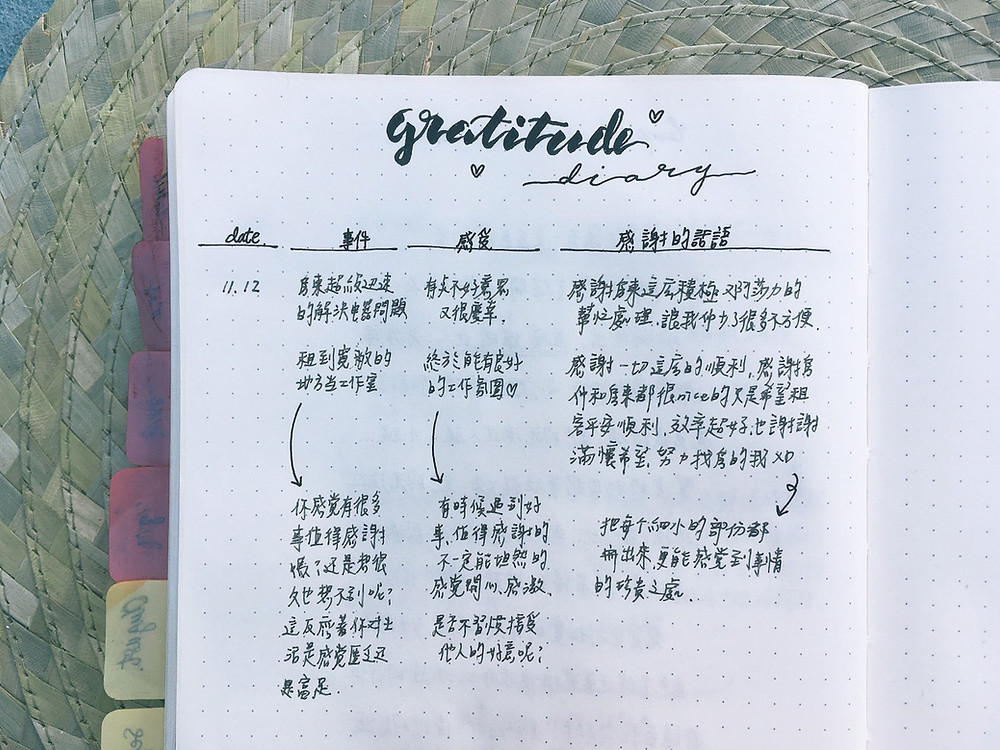 gratitude
diary
date 事件 感受 感謝的話語
11.12
房東超級迅速
的解決電器問題
有點不好意思
又很慶幸.
感謝房東這麼積極又阿莎力的
幫忙處理.讓我們少了很多不方便.
租到寬敞的
地方當工作室
終於能有良好
的工作氛圍♡
感謝一切這麼的順利,感謝房
仲和房東都很nice的只是希望租
客平安順利,效率超好,也謝謝
滿懷希望,努力找房的我XD
你感覺有很多
事值得感謝
惜了還是想很
久也想不到呢?
這反應著你對生
活是感覺匱乏還
是富足.
有時候遇到好
事,值得感謝的
不一定能坦然的
感覺開心、感激、
是否不習慣接受
他人的好意呢?
把每個細小的部份都
冊出來,更能感覺到事情
的珍貴之處.